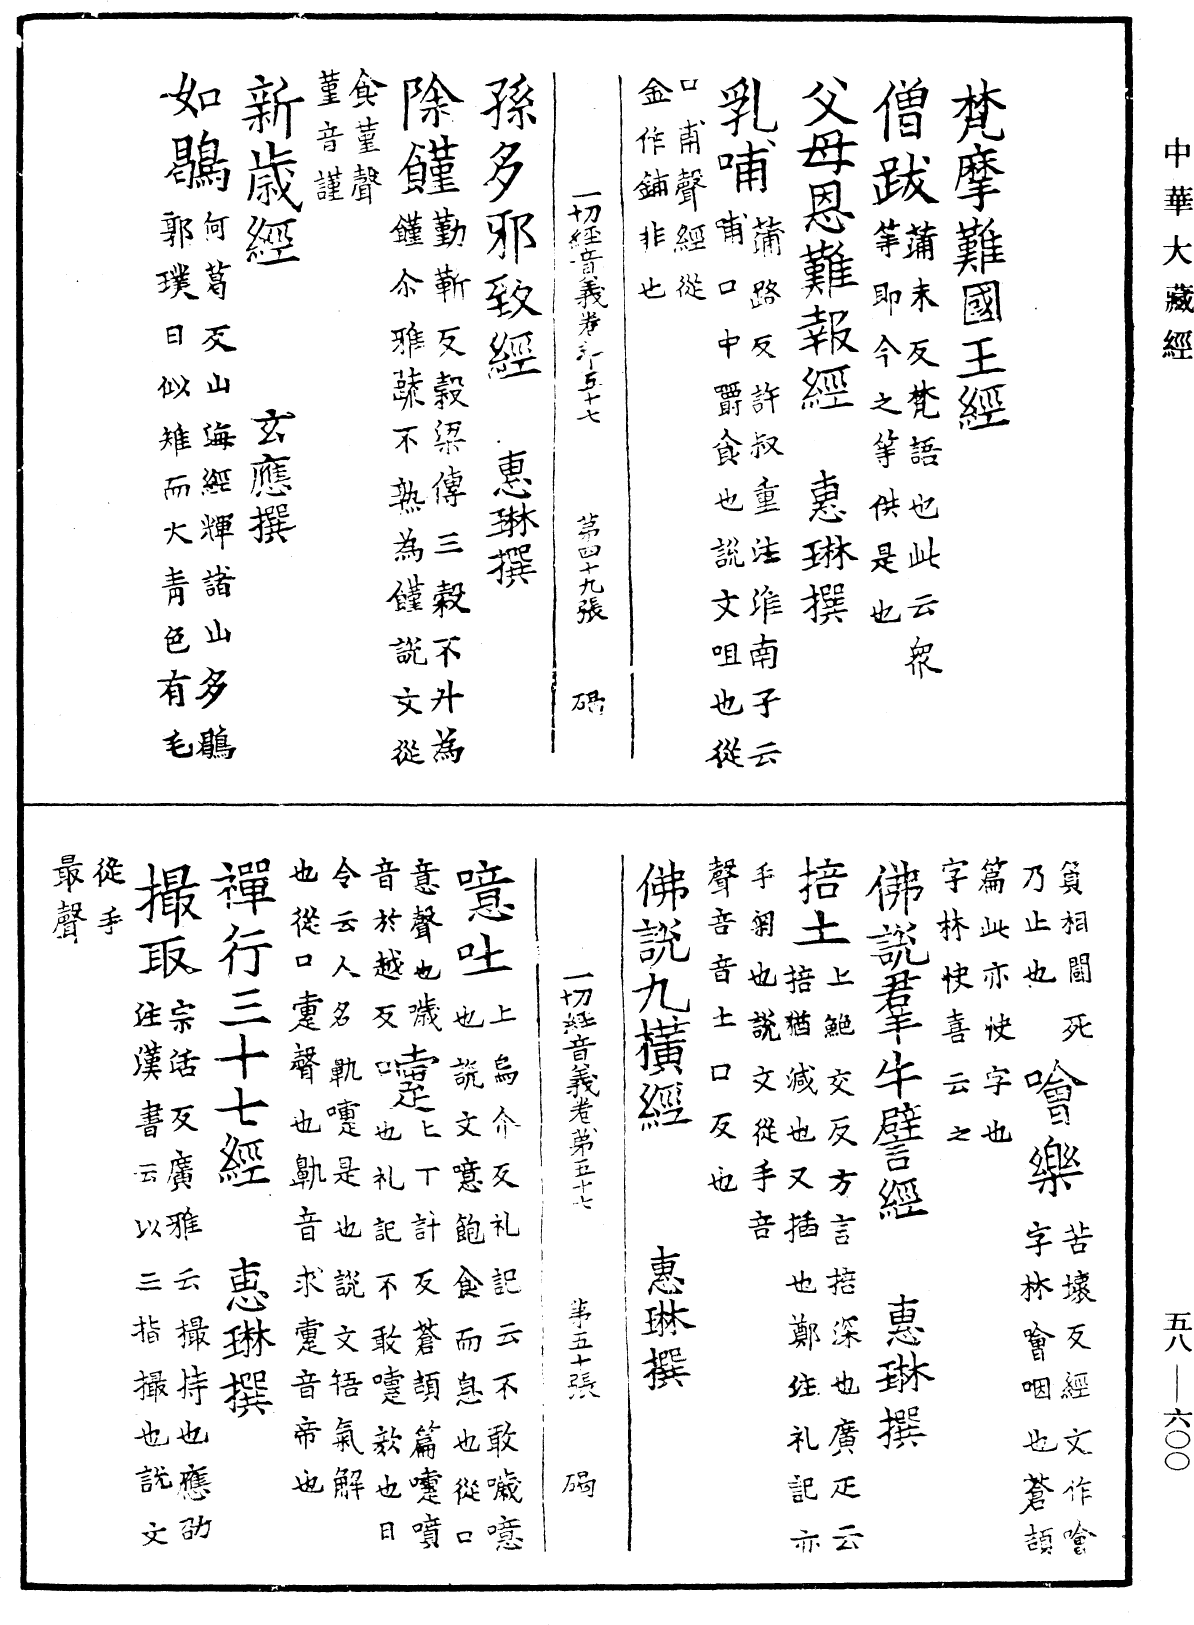 中華大藏經
梵摩難國王經
僧跋蒲末反梵語也此云衆
等即今之等供是也
父母恩難報經 惠琳撰
乳哺蒲路反許叔重注淮南子云
哺口中嚼食也說文咀也從
口甫聲經從
金作鋪非也
一切經音義卷第五十七 第四十九張 碣
孫多邪致經 惠琳撰
除饉勤靳反穀梁傳三穀不升為
饉尒雅蔬不熟為饉說文從
食堇聲
堇音謹
新歲經 玄應撰
如鶡何葛反山海經輝諸山多鶡
郭璞曰似雉而大青色有毛
負相鬪死
乃止也 噲樂苦壞反經文作噲
字林噲咽也蒼頡
篇此亦快字也
字林快喜云之
佛說羣牛譬經 惠琳撰
掊土上鮑交反方言掊深也廣疋云
掊猶減也又插也鄭注礼記亦
手匊也說文從手咅
聲咅音土口反也
佛說九橫經 惠琳撰
一切經音義卷第五十七 第五十張 碣
噫吐上烏介反礼記云不敢噦噫
也說文噫飽食而息也從口
意聲也噦
音於越反 嚏上丁計反蒼頡篇嚏噴
口也礼記不敢嚏欬也曰
今云人名䵷嚏是也說文悟氣解
也從口疐聲也鼽音求疐音帝也
禪行三十七經 惠琳撰
撮取宗活反廣雅云撮持也應劭
注漢書云以三指撮也說文
從手
最聲
五八—六〇〇